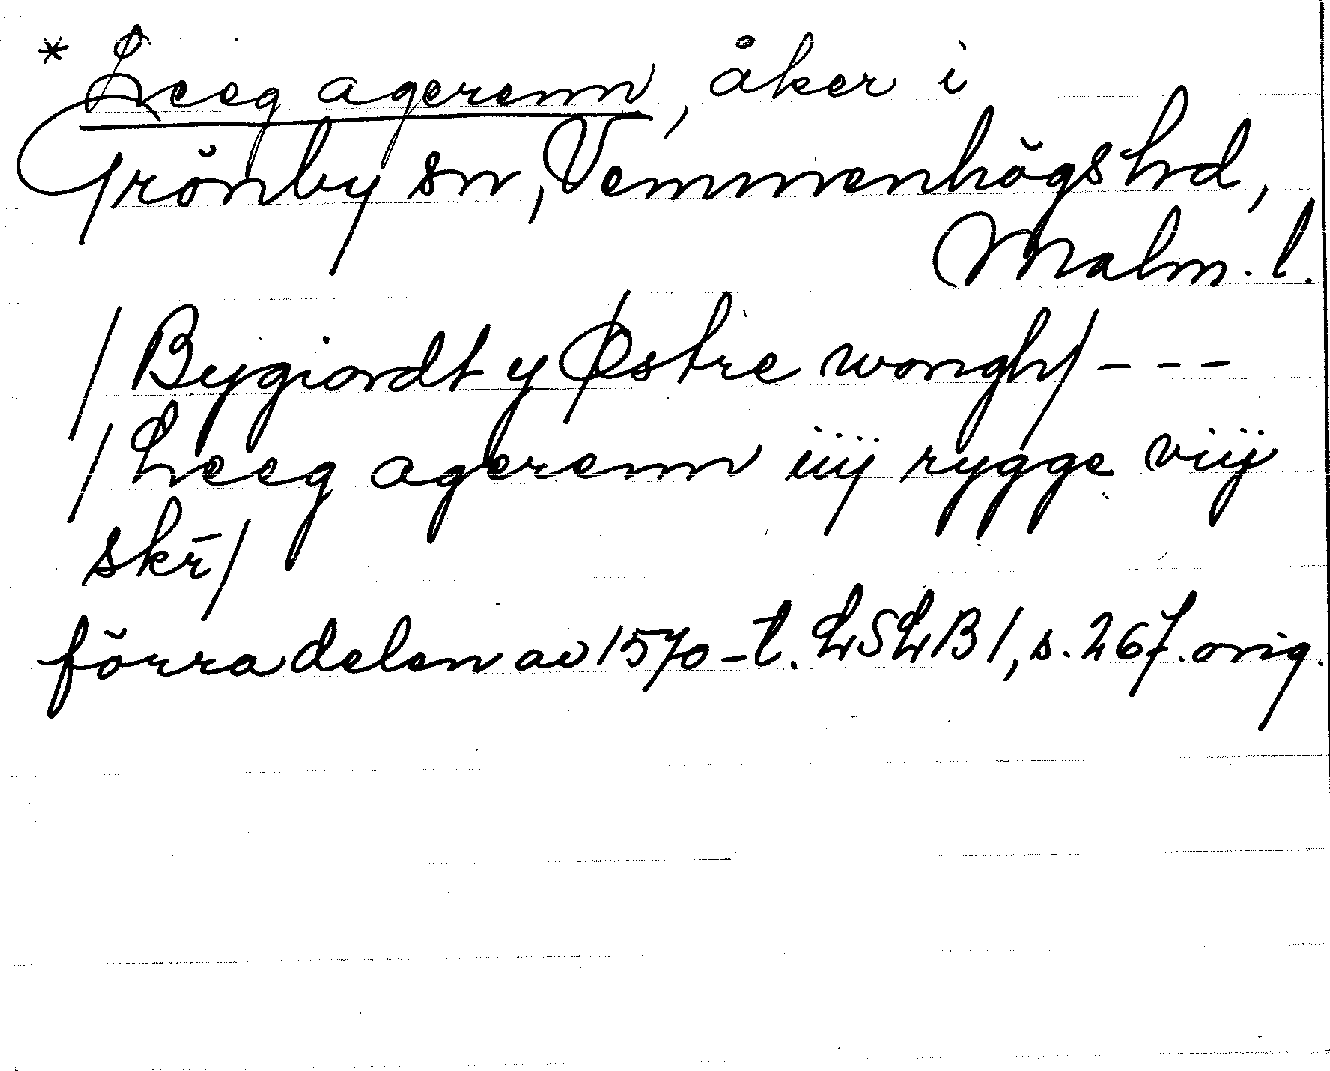 * Leeg agerenn, åker i
Grönby sn, Vemmenhögs hd,
Malm. l.
/Bygiordt y Østre wongh/ - - -
/Leeg agerenn iiij rygge viij
skr̄/
förra delen av 1570-t. LSLB 1, s. 267. orig.